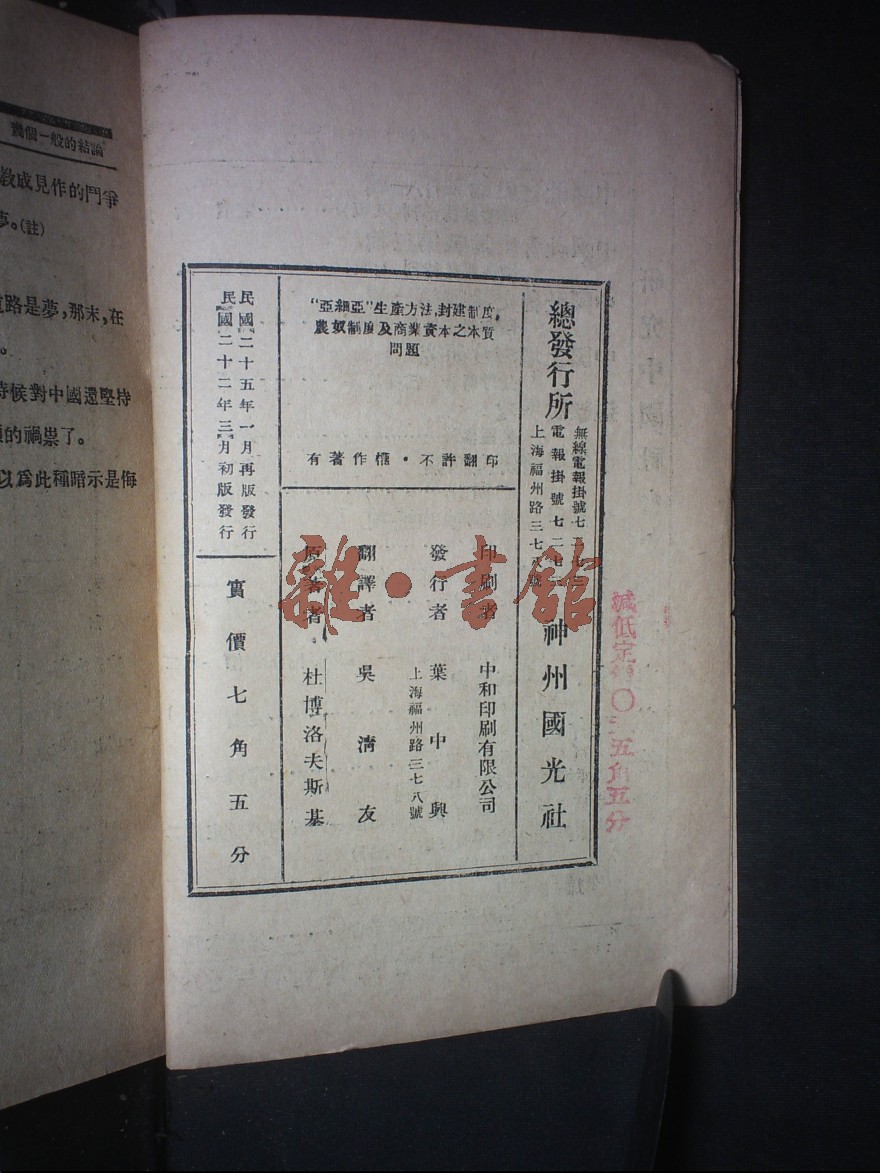 幾個一般的結論
教成見作的鬥爭
夢。(註)
道路是夢,那末,在
時候對中國還堅持
頭的禍祟了。
以爲此種暗示是侮
總發行所
無線電報掛號七二七三
電報掛號七二七三
上海福州路三七八號
神州國光社
"亞細亞"生產方法,封建制度,
農奴制度及商業資本之本質
問題
有著作權・不許翻印
印刷者 中和印刷有限公司
發行者 葉中興
上海福州路三七八號
翻譯者 吳清友
原著者 杜博洛夫斯基
民國二十五年一月再版發行
民國二十二年三月初版發行
實價七角五分
減低定價
五角五分
雜・書館